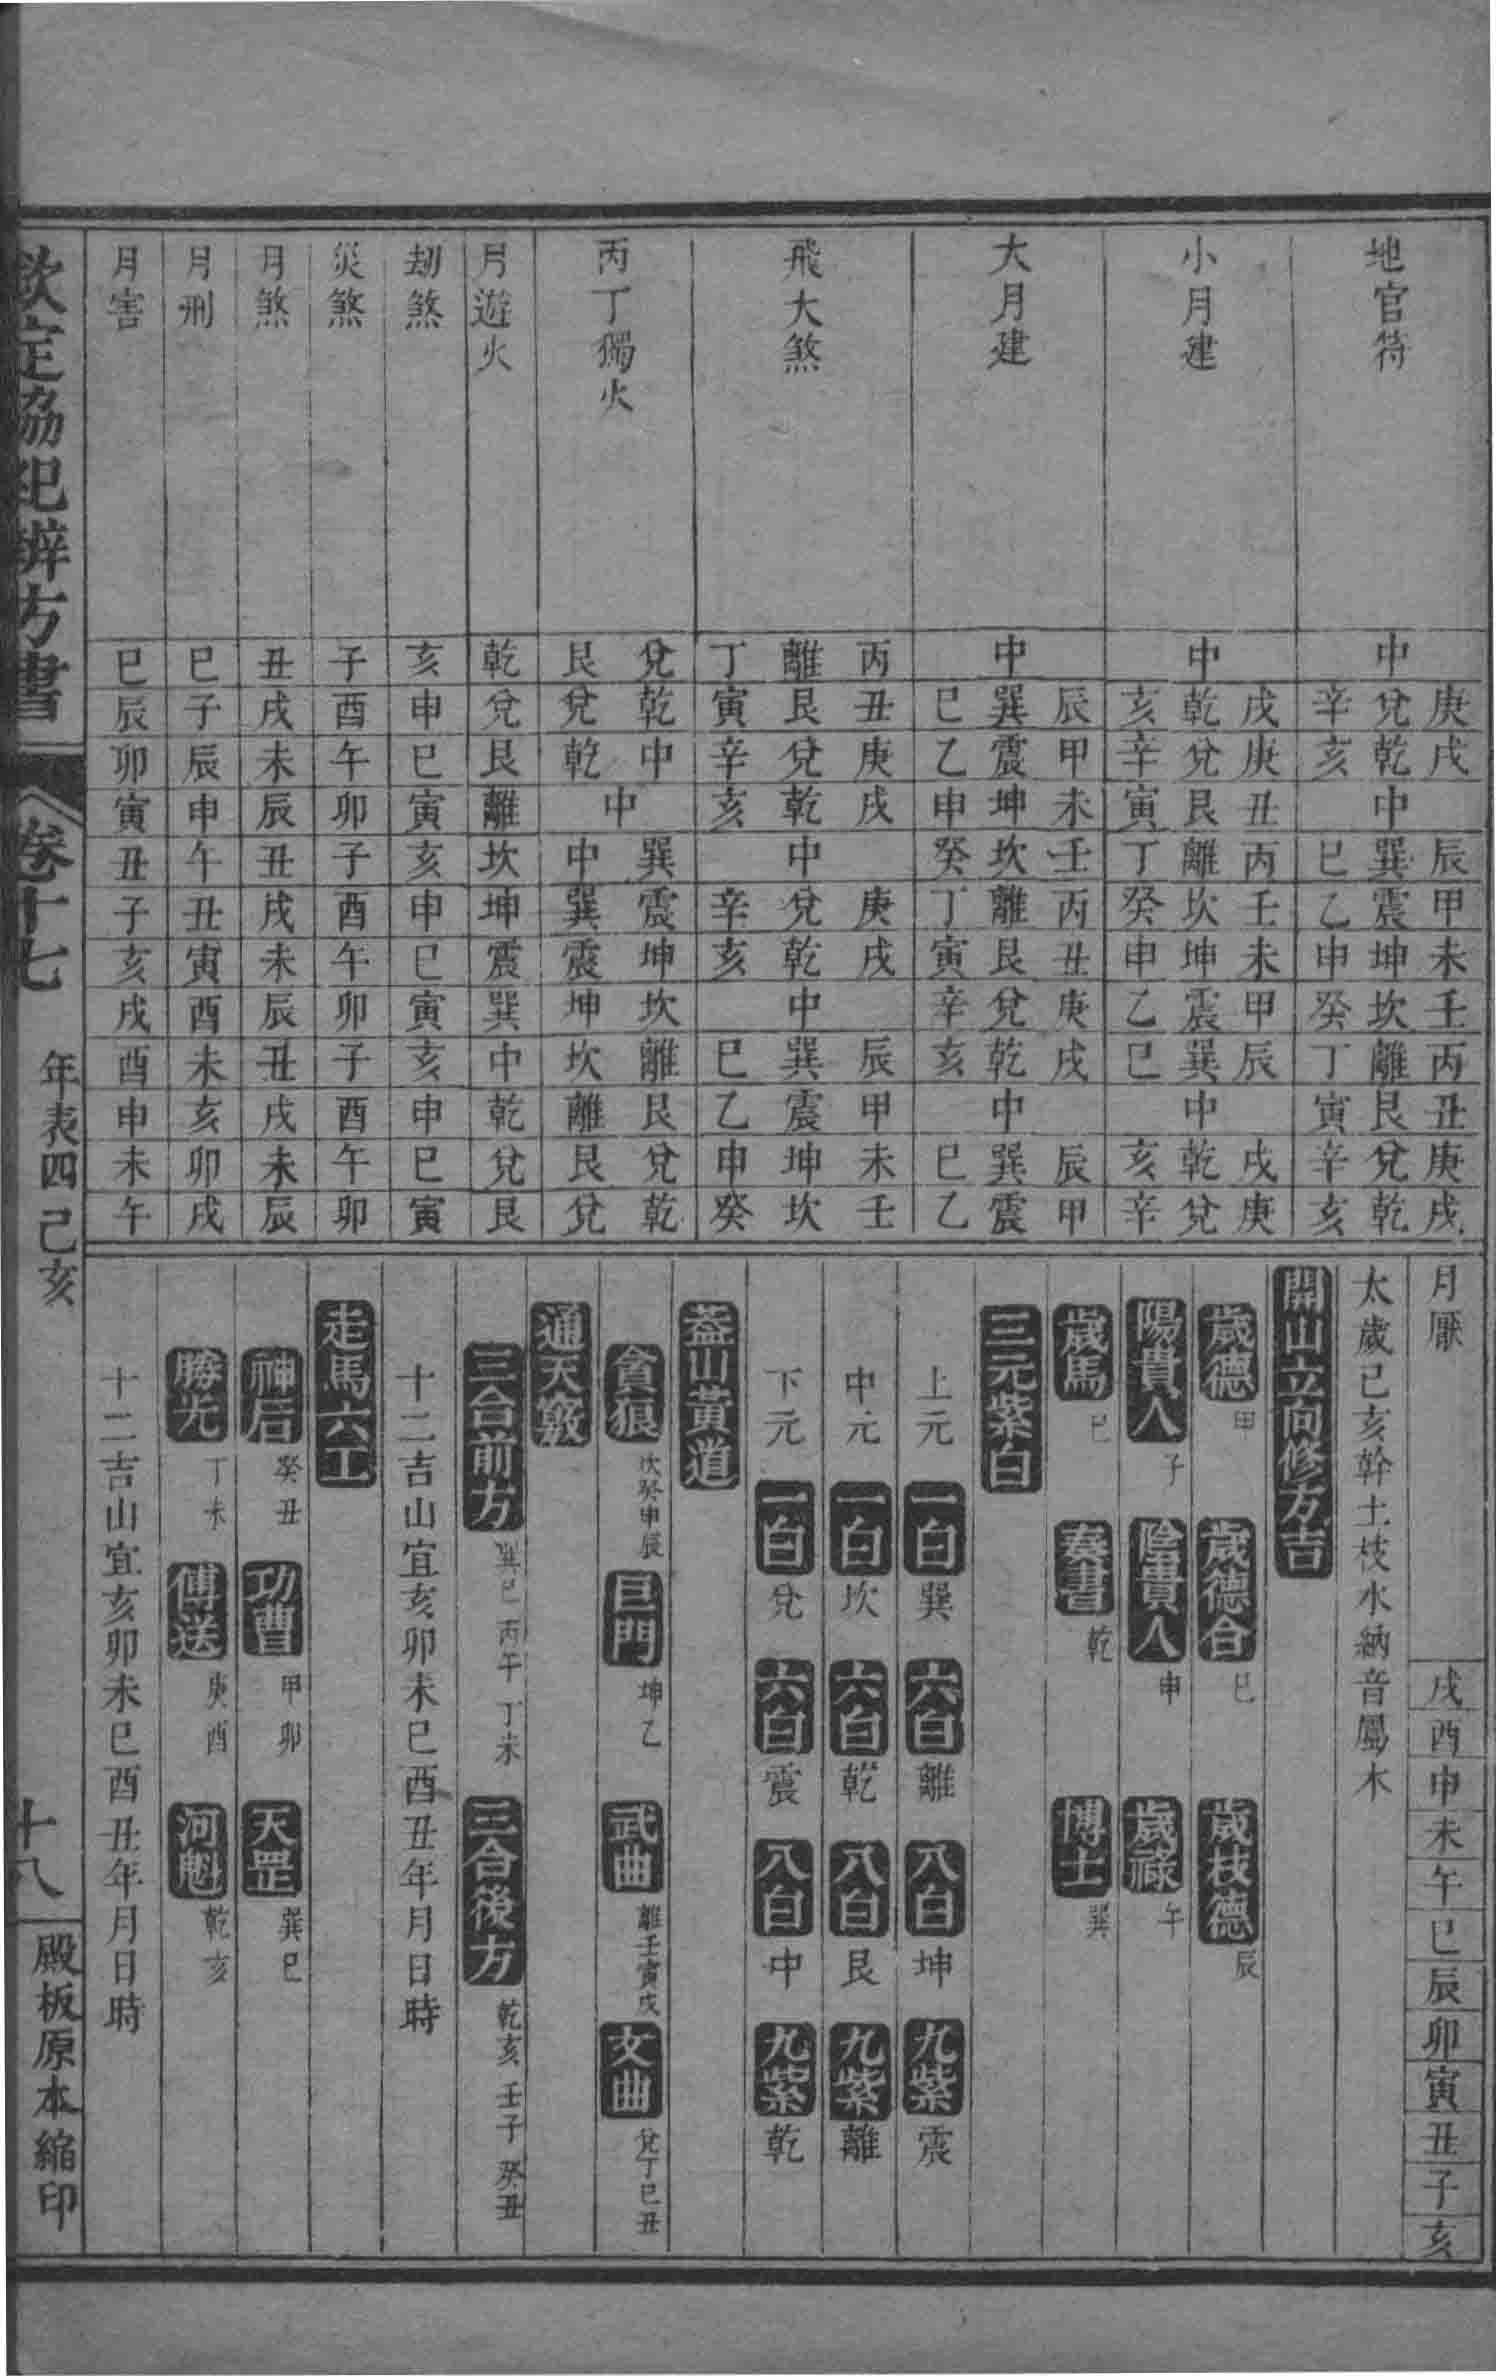 地官符 中 庚兌辛 戌乾亥 中 辰巽巳 甲震乙 未坤申 壬坎癸 丙離丁 丑艮寅 庚兌辛 戌乾亥
小月建 中 戌乾亥 庚兌辛 丑艮寅 丙離丁 壬坎癸 未坤申 甲震乙 辰巽巳 中 戌乾亥 庚兌辛
大月建 中 辰巽巳 甲震乙 未坤申 壬坎癸 丙離丁 丑艮寅 庚兌辛 戌乾亥 中 辰巽巳 甲震乙
飛大煞 丙離丁 丑艮寅 庚兌辛 戌乾亥 中 庚兌辛 戌乾亥 中 辰巽巳 甲震乙 未坤申 壬坎癸
丙丁獨火 兌艮 乾兌 中乾 中 巽中 震巽 坤震 坎坤 離坎 艮離 兌艮 乾兌
月遊火 乾 兌 艮 離 坎 坤 震 巽 中 乾 兌 艮
劫煞 亥 申 巳 寅 亥 申 巳 寅 亥 申 巳 寅
災煞 子 酉 午 卯 子 酉 午 卯 子 酉 午 卯
月煞 丑 戌 未 辰 丑 戌 未 辰 丑 戌 未 辰
月刑 巳 子 辰 申 午 丑 寅 酉 未 亥 卯 戌
月害 巳 辰 卯 寅 丑 子 亥 戌 酉 申 未 午
月厭 戌 酉 申 未 午 巳 辰 卯 寅 丑 子 亥
太歲己亥幹土枝水納音屬木
開山立向修方吉
歲德 甲 歲德合 巳 歲枝德 辰
陽貴人 子 陰貴人 申 歲祿 午
歲馬 巳 奏書 乾 博士 巽
三元紫白
上元 一白 巽 六白 離 八白 坤 九紫 震
中元 一白 坎 六白 乾 八白 艮 九紫 離
下元 一白 兌 六白 震 八白 中 九紫 乾
蓋山黃道
貪狼 坎癸申辰 巨門 坤乙 武曲 離壬寅戌 文曲 兌丁巳丑
通天竅
三合前方 巽巳 丙午 丁未 三合後方 乾亥 壬子 癸丑
十二吉山宜亥卯未巳酉丑年月日時
走馬六壬
神后 癸丑 功曹 甲卯 天罡 巽巳
勝光 丁未 傳送 庚酉 河魁 乾亥
十二吉山宜亥卯未巳酉丑年月日時
欽定協紀辨方書 卷十七 年表四 己亥 十八 殿板原本縮印